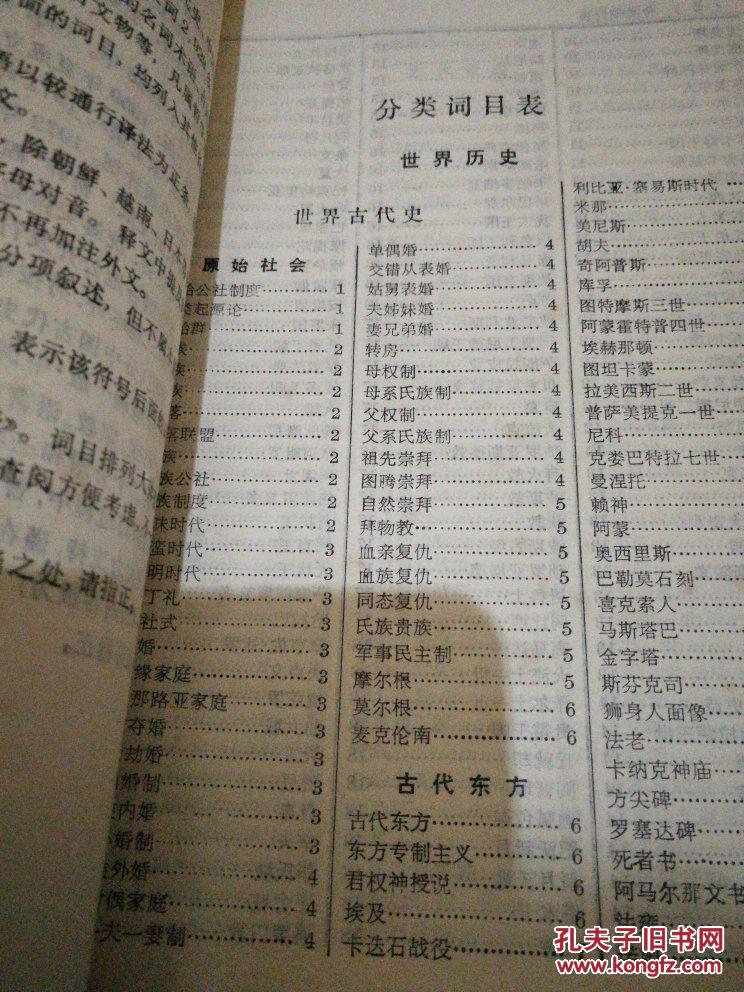 的名词术语
文物等，凡
面的词目，均列入其
以较通行译法为正条，
除朝鲜、越南、日本
母对音。释文中
不再加注外文。
分项叙述，但不
表示该符号后面
》。词目排列大
查阅方便考虑，
之处，请指正。
分类词目表
世界历史
世界古代史
原始社会
公社制度 1
起源论 1
群 1
族 2
2
族 2
2
联盟 2
族 2
公社 2
族制度 2
时代 2
蛮时代 3
明时代 3
丁礼 3
社式 3
婚 3
缘家庭 3
那路亚家庭 3
夺婚 3
劫婚 3
婚制 3
内婚 3
婚制 3
外婚 4
偶家庭 4
夫一妻制 4
单偶婚 4
交错从表婚 4
姑舅表婚 4
夫姊妹婚 4
妻兄弟婚 4
转房 4
母权制 4
母系氏族制 4
父权制 4
父系氏族制 4
祖先崇拜 4
图腾崇拜 4
自然崇拜 5
拜物教 5
血亲复仇 5
血族复仇 5
同态复仇 5
氏族贵族 5
军事民主制 5
摩尔根 5
莫尔根 6
麦克伦南 6
古代东方
古代东方 6
东方专制主义 6
君权神授说 6
埃及 6
卡迭石战役
利比亚·塞易斯时代
米那
美尼斯
胡夫
奇阿普斯
库孚
图特摩斯三世
阿蒙霍特普四世
埃赫那顿
图坦卡蒙
拉美西斯二世
普萨美提克一世
尼科
克娄巴特拉七世
曼涅托
赖神
阿蒙
奥西里斯
巴勒莫石刻
喜克索人
马斯塔巴
金字塔
斯芬克司
狮身人面像
法老
卡纳克神庙
方尖碑
罗塞达碑
死者书
阿马尔那文书
孔夫子旧书网
www.kongfz.com